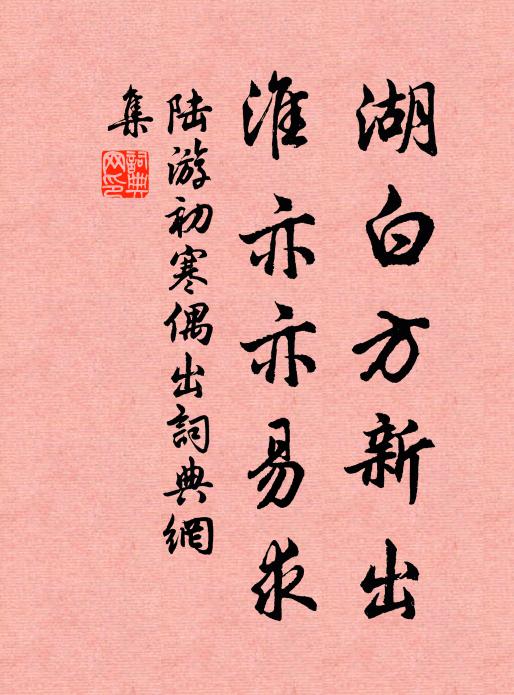 湖白方新出
淮亦亦易求
陆游初寒偶出詞典網
集
詞典网印